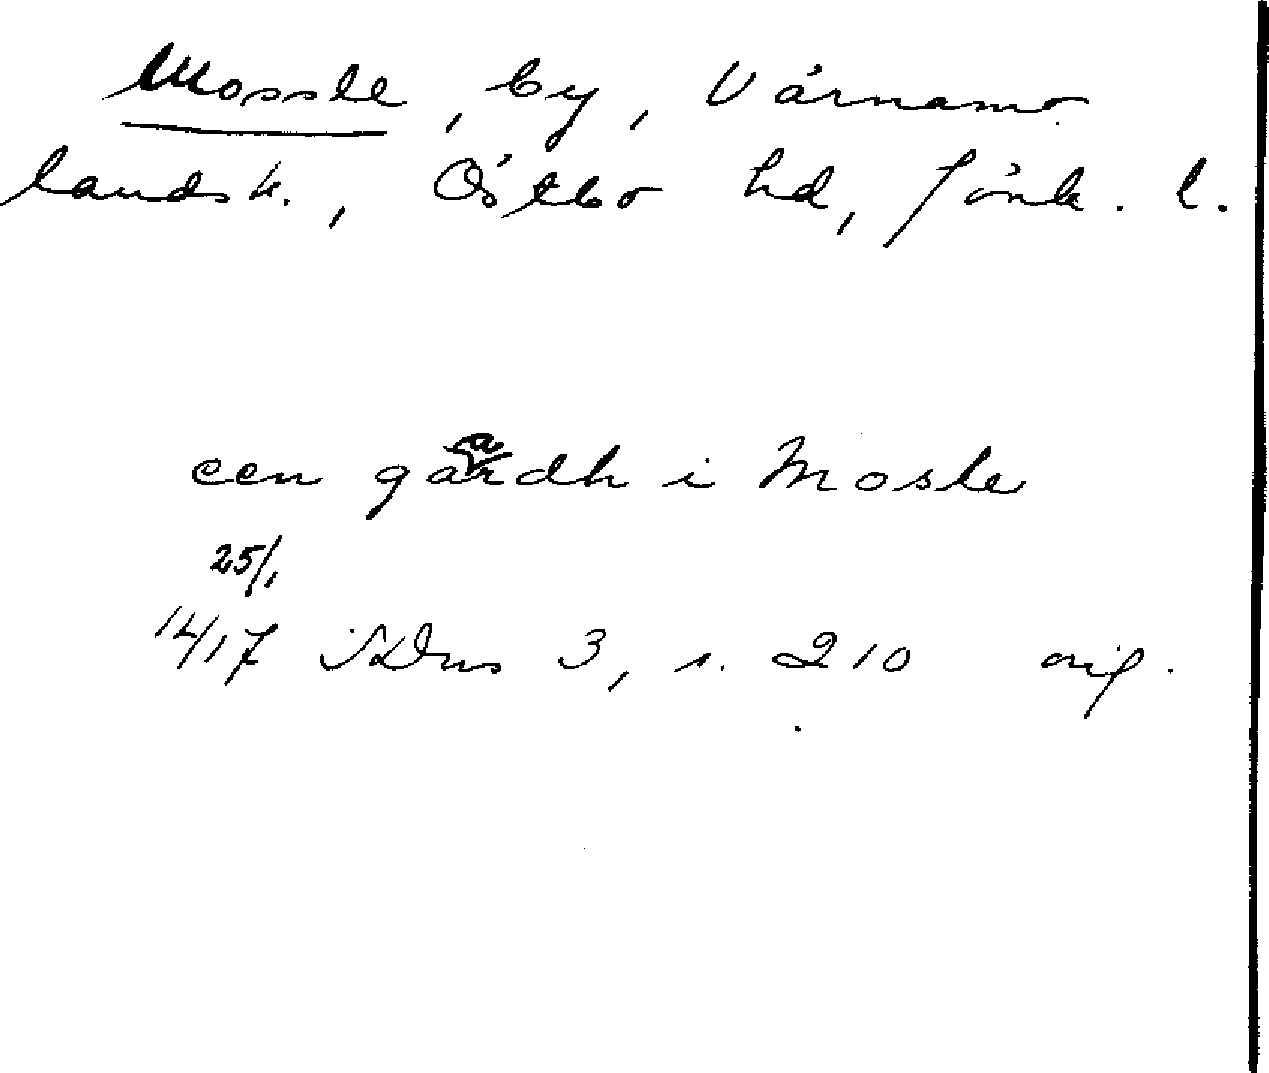 Mossle, by, Värnamo
landsk., Östbo hd, Jönk. l.
een gaardh i Mosle
25/1
1417 SDns 3, s. 210 orig.